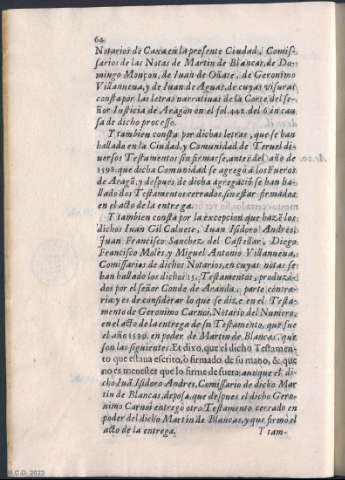 64
Notarios de Caxa en la presente Ciudad, Comiss-
sarios de las Notas de Martin de Blancas, de Do-
mingo Monçon, de Iuan de Oñate, de Geronimo
Villanueua, y de Iuan de Aguas, de cuyas visuras
consta por las letras narratiuas de la Corte, del se-
ñor Iusticia de Aragon en el fol. del 6. in cau-
sa de dicho processo.
Y tambien consta por dichas letras, que se han
hallado en la Ciudad, y Comunidad de Teruel di-
uersos Testamentos sin firmarse, antes del año de
1598. que dicha Comunidad se agregò a los Fueros
de Aragõ, y despues de dicha agregaciõ se han ha-
llado dos Testamentos cerrados, sin estar firmados
en el acto de la entrega.
Y tambien consta por la excepcion que hazẽ los
dichos Iuan Gil Caluete, Iuan Isidoro Andrès,
Iuan Francisco Sanchez del Castellar, Diego
Francisco Molès, y Miguel Antonio Villanueua,
Comissarios de dichos Notarios, en cuyas notas se
han hallado los dichos 15. Testamentos, produza-
dos por el señor Conde de Aranda, parte contra-
ria, y es de considerar lo que se dize en el Testa-
mento de Geronimo Carnoi, Notario del Numero,
en el acto de la entrega de su Testamento, que fue
el año 1590. en poder de Martin de Blancas, que
son las siguientes. Et dixo, que el dicho Testamen-
to que estaua escrito, ò firmado de su mano, &, que
no es menester que lo firme de fuera, aunque el di-
cho Iuã Isidoro Andrès, Comissario de dicho Mar
tin de Blancas, deposa, que despues el dicho Gero-
nimo Carnoi entregò otro Testamento, cerrado en
poder del dicho Martin de Blancas, y que firmò el
acto de la entrega.
Y tam-
M.C.D. 2022